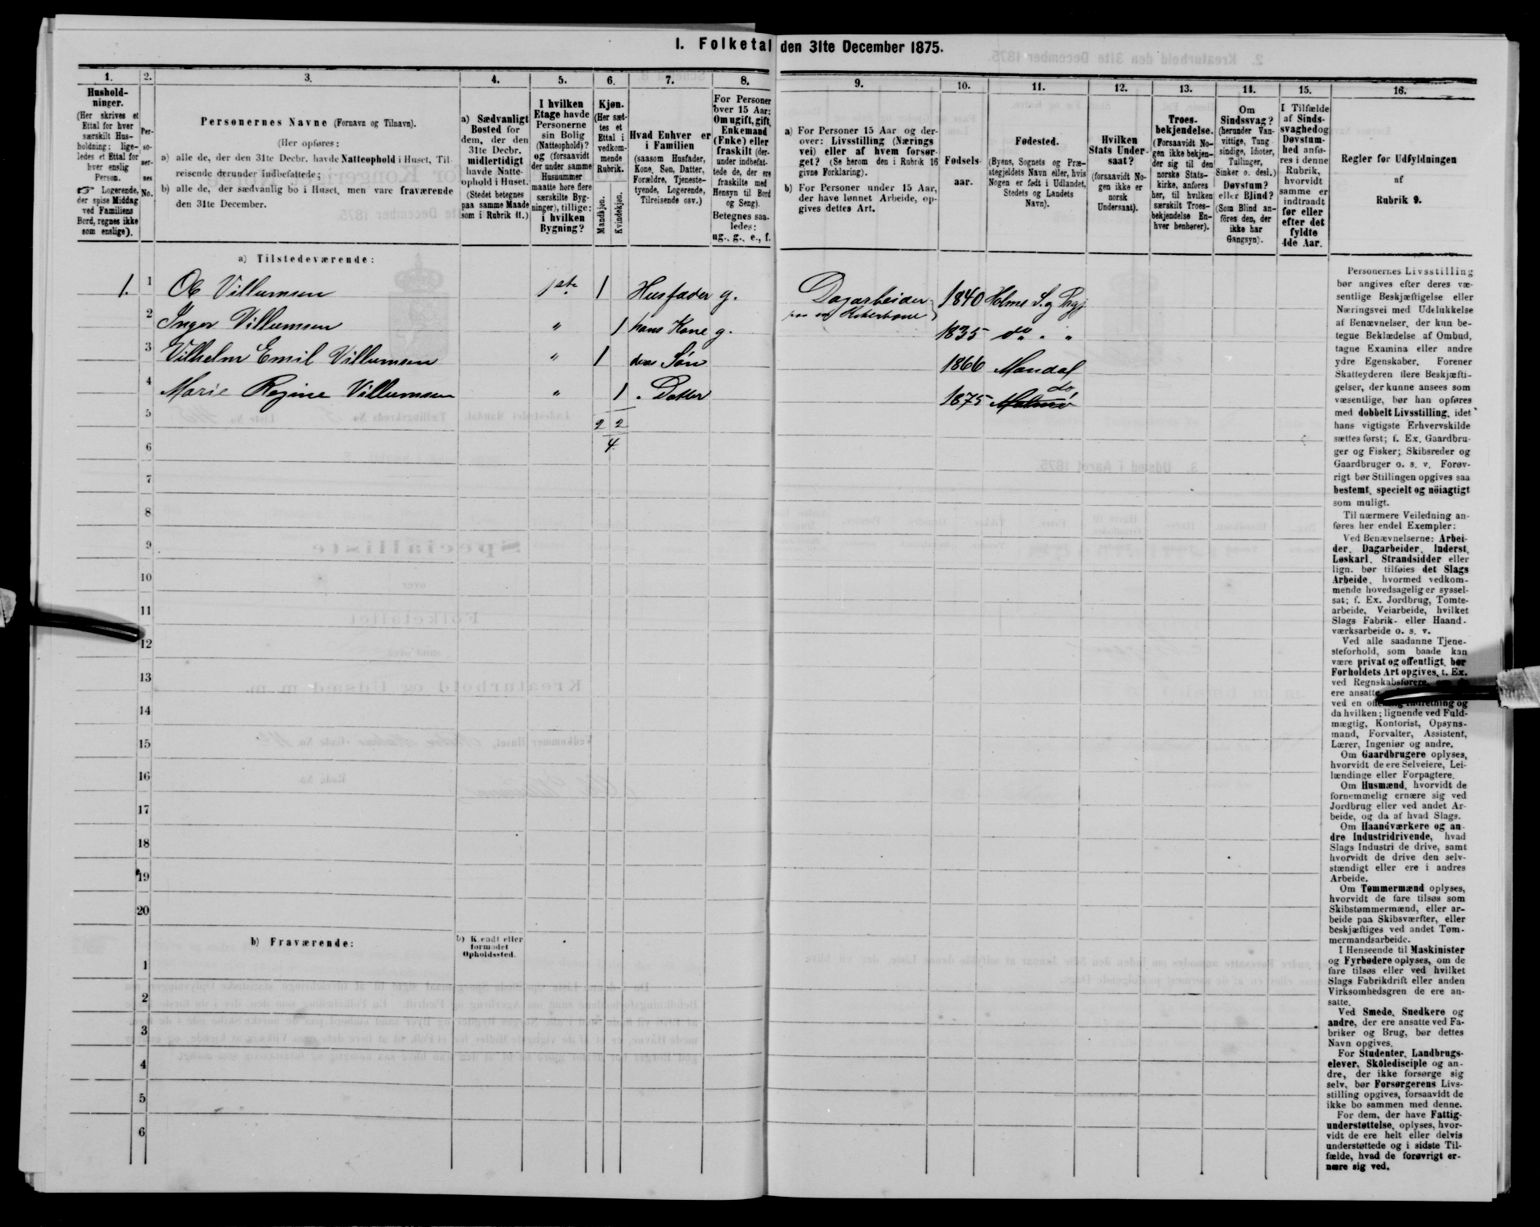 I. Folketal den 31te December 1875.
1.
2.
3.
4.
5.
6.
7.
8.
9.
10.
11.
12.
13.
14.
15.
16.
Hushold-
ninger.
(Her skrives et
Ettal for hver
særskilt Hus-
holdning; lige-
ledes et Ettal for
hver enslig
Person.
☞ Logerende,
der spise Middag
ved Familiens
Bord, regnes ikke
som enslige).
Per-
so-
ner-
nes
No.
Personernes Navne (Fornavn og Tilnavn).
(Her opføres:
a) alle de, der den 31te Decbr. havde Natteophold i Huset, Til-
reisende derunder indbefattede;
b) alle de, der sædvanlig bo i Huset, men vare fraværende
den 31te December.
a) Sædvanligt
Bosted for
dem, der den
31te Decbr.
midlertidigt
havde Natte-
ophold i Huset.
(Stedet betegnes
paa samme Maade
som i Rubrik 11.)
I hvilken
Etage havde
Personerne
sin Bolig
(Natteophold)?
og (forsaavidt
der under samme
Husnummer
maatte høre flere
særskilte Byg-
ninger), tillige:
i hvilken
Bygning?
Kjøn.
(Her sæt-
tes et
Ettal i
vedkom-
mende
Rubrik.
Mandkjøn.
Kvindekjøn.
Hvad Enhver er
i Familien
(saasom Husfader,
Kone, Søn, Datter,
Forældre, Tjeneste-
tyende, Logerende,
Tilreisende osv.)
For Personer
over 15 Aar:
Om ugift, gift,
Enkemand
(Enke) eller
fraskilt (der-
under indbefat-
tede de, der ere
fraskilte med
Hensyn til Bord
og Seng).
Betegnes saa-
ledes:
ug., g., e., f.
a) For Personer 15 Aar og der-
over: Livsstilling (Nærings-
vei) eller af hvem forsør-
get? (Se herom den i Rubrik 16
givne Forklaring).
b) For Personer under 15 Aar,
der have lønnet Arbeide, op-
gives dettes Art.
Fødsels-
aar.
Fødested.
(Byens, Sognets og Præ-
stegjeldets Navn eller, hvis
Nogen er født i Udlandet,
Stedets og Landets
Navn).
Hvilken
Stats Under-
saat?
(forsaavidt No-
gen ikke er
norsk
Undersaat).
Troes-
bekjendelse.
(Forsaavidt No-
gen ikke bekjen-
der sig til den
norske Stats-
kirke, anføres
her, til hvilken
særskilt Troes-
bekjendelse En-
hver henhører).
Om
Sindssvag?
(herunder Van-
vittige, Tung
sindige, Idioter,
Tullinger,
Sinker o. desl.)
Døvstum?
eller Blind?
(Som Blind an-
føres den, der
ikke har
Gangsyn).
I Tilfælde
af Sinds-
svaghed og
Døvstum-
hed anfø-
res i denne
Rubrik,
hvorvidt
samme er
indtraadt
før eller
efter det
fyldte
4de Aar.
Regler for Udfyldningen
af
Rubrik 9.
a) Tilstedeværende:
1. 1 Ole Villumsen 1ste 1 Husfader g. Dagarbeider 1840 Holme S. og Prgj
2 Inger Villumsen " 1 hans Kone g. 1835 do " "
3 Vilhelm Emil Villumsen " 1 deres Søn 1866 Mandal
4 Marie Regine Villumsen " 1 " Datter 1875 do
5 2 2
6 4
7
8
9
10
11
12
13
14
15
16
17
18
19
20
b) Fraværende:
b) Kjendt eller
formodet
Opholdssted.
1
2
3
4
5
6
Personernes Livsstilling
bør angives efter deres væ-
sentlige Beskjæftigelse eller
Næringsvei med Udelukkelse
af Benævnelser, der kun be-
tegne Beklædelse af Ombud,
tagne Examina eller andre
ydre Egenskaber. Forener
Skatteyderen flere Beskjæfti-
gelser, der kunne ansees som
væsentlige, bør han opføres
med dobbelt Livsstilling, idet
hans vigtigste Erhvervskilde
sættes først; f. Ex. Gaardbru-
ger og Fisker; Skibsreder og
Gaardbruger o. s. v. Forøv-
rigt bør Stillingen opgives saa
bestemt, specielt og nöiagtigt
som muligt.
Til nærmere Veiledning an-
føres her endel Exempler:
Ved Benævnelserne: Arbei-
der, Dagarbeider, Inderst,
Løskarl, Strandsidder eller
lign. bør tilføies det Slags
Arbeide, hvormed vedkom-
mende hovedsagelig er syssel-
sat; f. Ex. Jordbrug, Tomte-
arbeide, Veiarbeide, hvilket
Slags Fabrik- eller Haand-
værksarbeide o. s. v.
Ved alle saadanne Tjene-
steforhold, som baade kan
være privat og offentligt, bør
Forholdets Art opgives, t. Ex.
ved Regnskabsførere,
ere ansatte
ved en offentlig Indretning og
da hvilken; lignende ved Fuld-
mægtig, Kontorist, Opsyns-
mand, Forvalter, Assistent,
Lærer, Ingeniør og andre.
Om Gaardbrugere oplyses,
hvorvidt de ere Selveiere, Lei-
lændinge eller Forpagtere.
Om Husmænd, hvorvidt de
fornemmelig ernære sig ved
Jordbrug eller ved andet Ar-
beide, og da af hvad Slags.
Om Haandværkere og an-
dre Industridrivende, hvad
Slags Industri de drive, samt
hvorvidt de drive den selv-
stændigt eller ere i andres
Arbeide.
Om Tømmermænd oplyses,
hvorvidt de fare tilsøs som
Skibstømmermænd, eller ar-
beide paa Skibsværfter, eller
beskjæftiges ved andet Tøm-
mermandsarbeide.
I Henseende til Maskinister
og Fyrbødere oplyses, om de
fare tilsøs eller ved hvilket
Slags Fabrikdrift eller anden
Virksomhedsgren de ere an-
satte.
Ved Smede, Snedkere og
andre, der ere ansatte ved Fa-
briker og Brug, bør dettes
Navn opgives.
For Studenter, Landbrugs-
elever, Skoledisciple og an-
dre, der ikke forsørge sig
selv, bør Forsørgerens Livs-
stilling opgives, forsaavidt de
ikke bo sammen med denne.
For dem, der have Fattig-
understøttelse, oplyses, hvor-
vidt de ere helt eller delvis
understøttede og i sidste Til-
fælde, hvad de forøvrigt er-
nære sig ved.